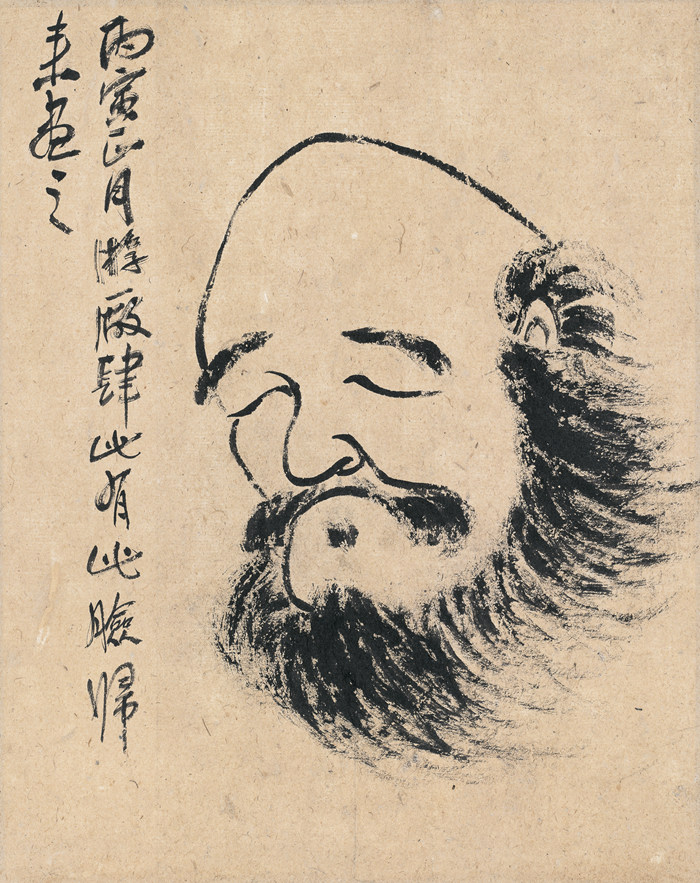 丙寅正月游廠肆此有此臉歸
來畫之